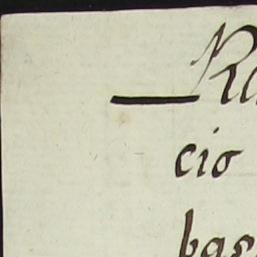 Ra
cio
bas